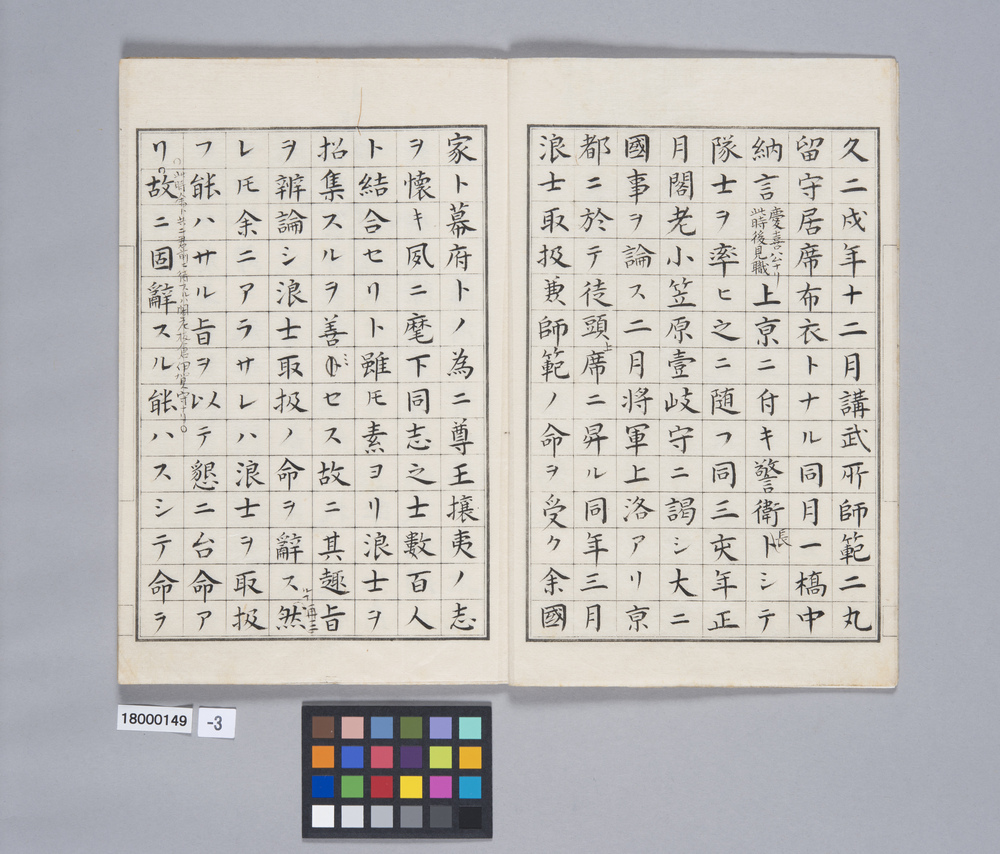 久二戌年十二月講武所師範二丸
留守居席布衣トナル同月一橋中
納言慶喜公ナリ此時後見職上京ニ付キ警衛長トシテ
隊士ヲ率ヒ之ニ随フ同三亥年正
月閣老小笠原壹岐守ニ謁シ大ニ
國事ヲ論ス二月将軍上洛アリ京
都ニ於テ徒頭上席ニ昇ル同年三月
浪士取扱兼師範ノ命ヲ受ク余國
家ト幕府トノ為ニ尊王攘夷ノ志
ヲ懐キ夙ニ麾下同志之士數百人
ト結合セリト雖モ素ヨリ浪士ヲ
招集スルヲ善ミセス故ニ其趣旨
ヲ辨論シ浪士取扱ノ命ヲ辭ス然
レモ余ニアラサレハ浪士ヲ取扱
フ能ハサル旨ヲ以テ懇ニ台命ア
リ故ニ固辭スル能ハスシテ命ヲ
18000149
-3